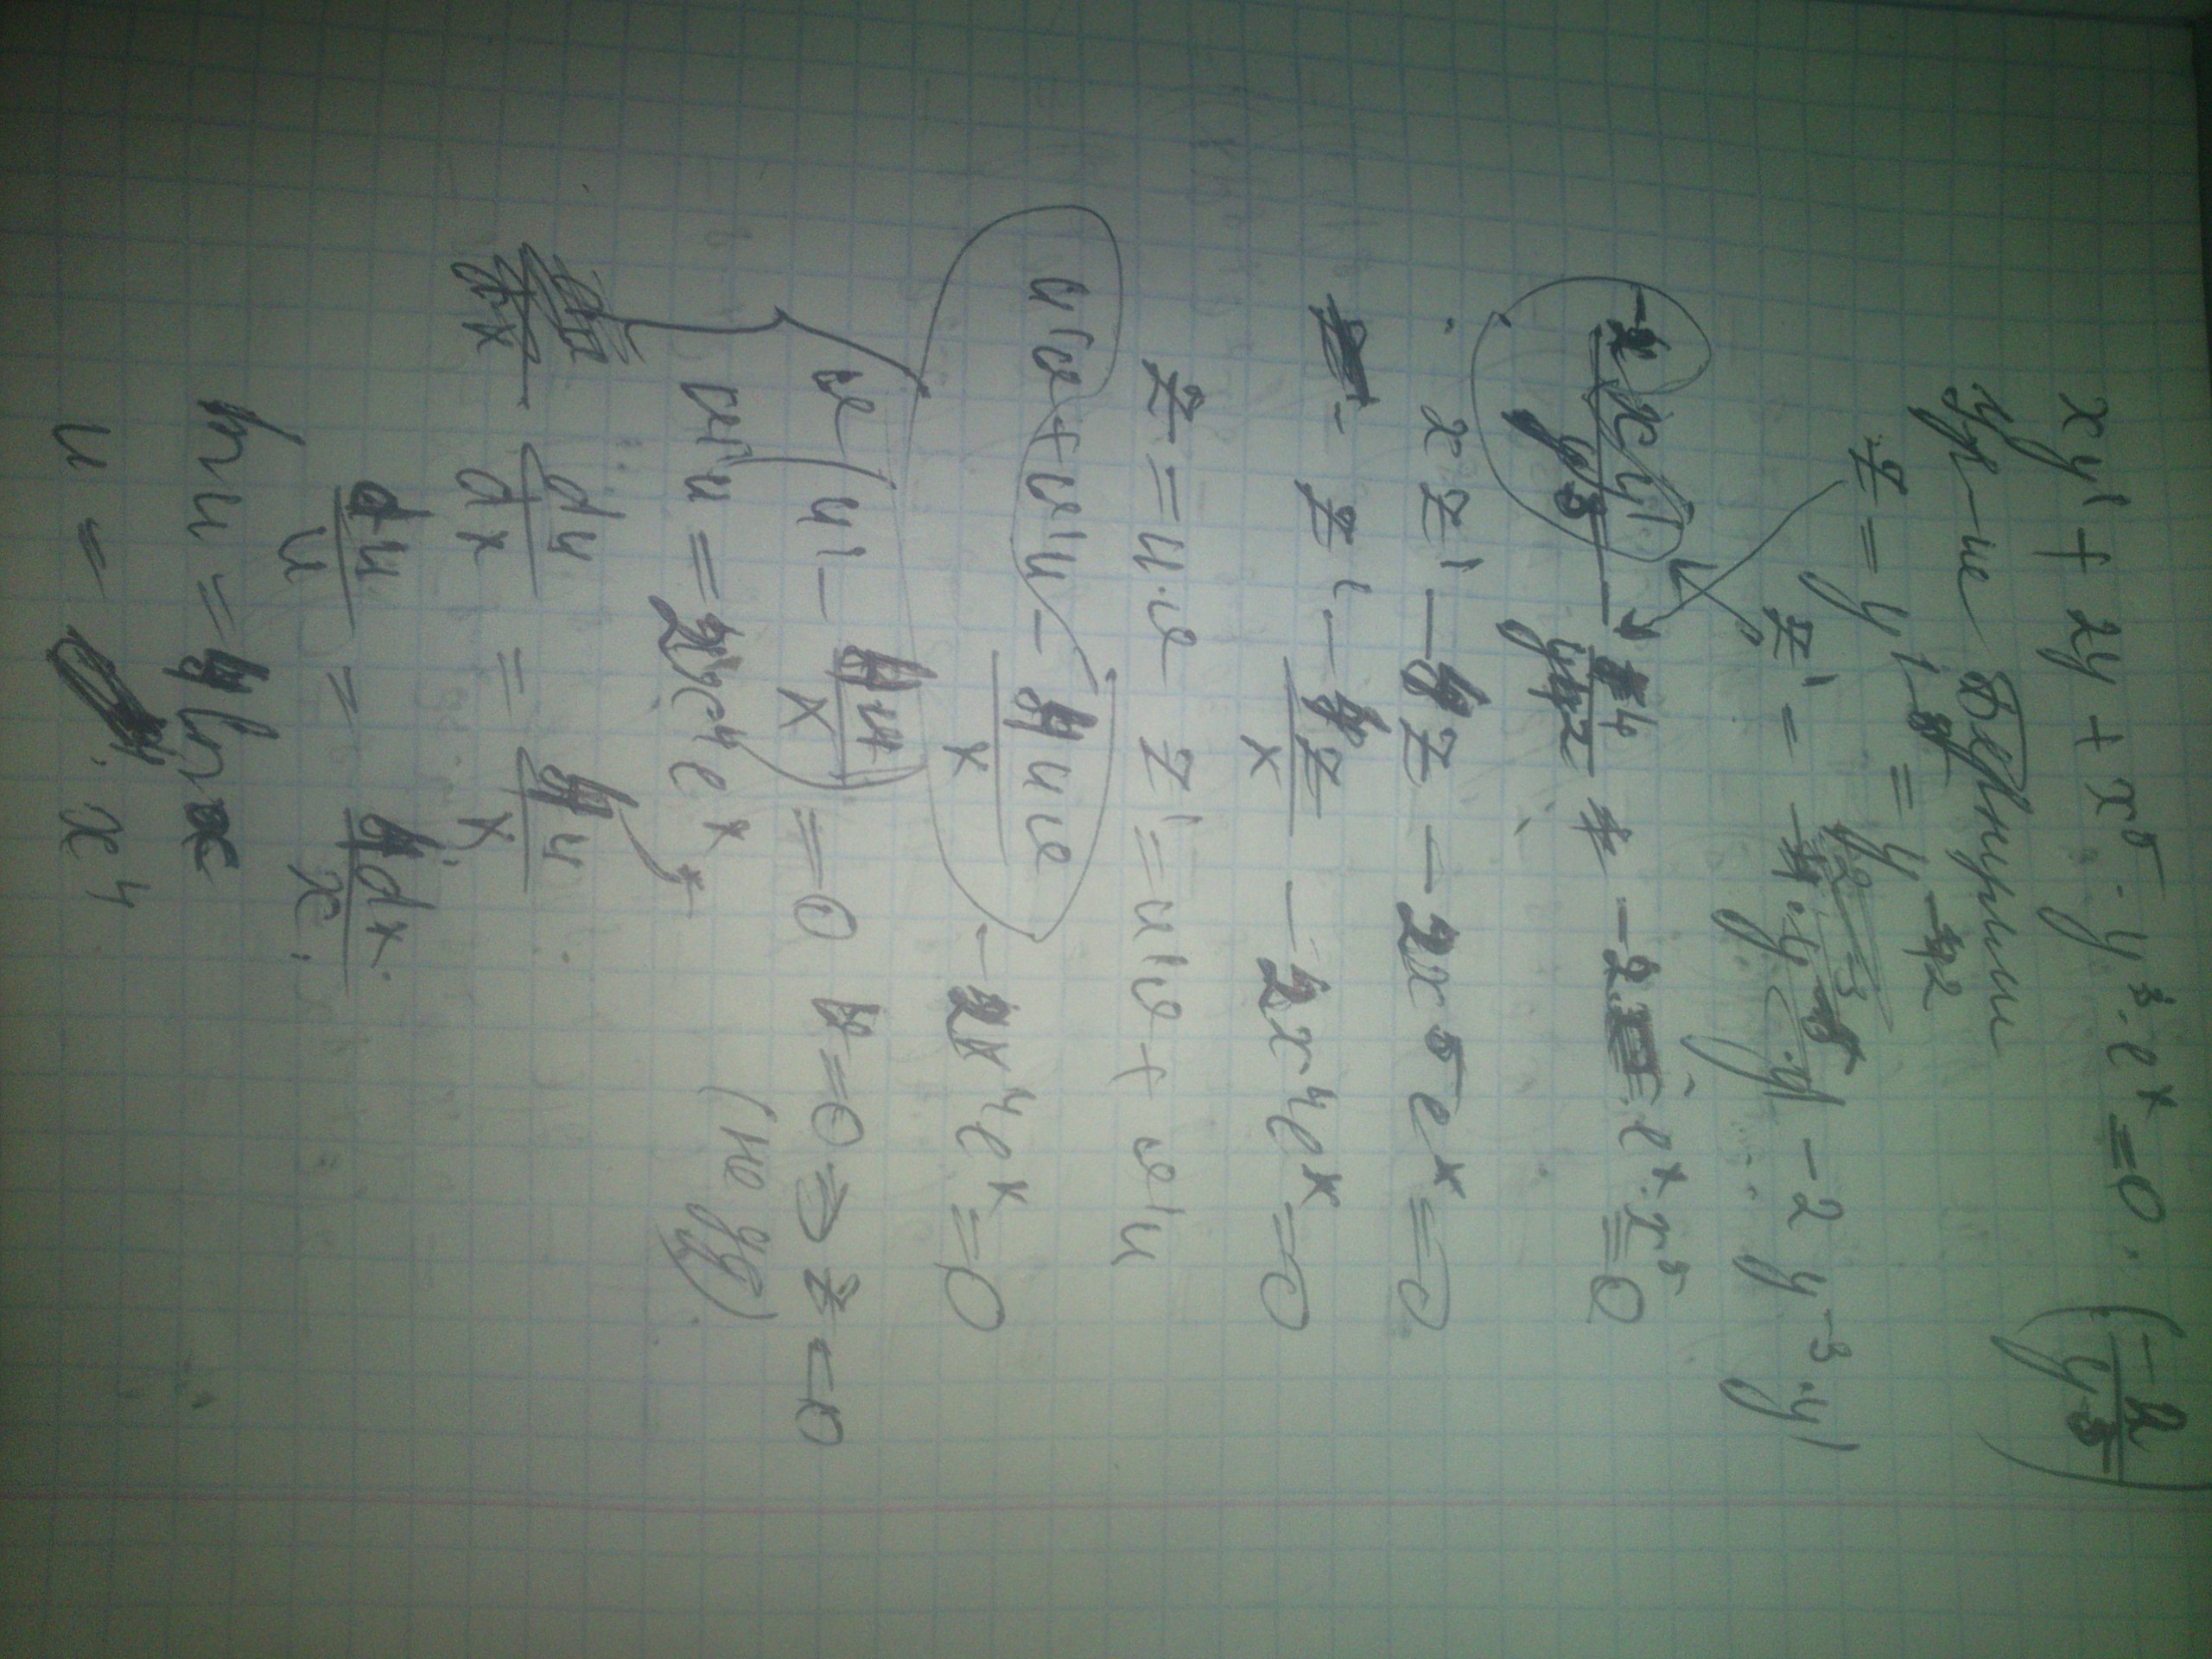 xy' + 2y + x⁵·y³·eˣ = 0 · (-2/y³)
ур-ие Бернулли
z = y¹⁻³ = y⁻²
z' = -2y⁻³y'
-2xy'/y³ - 4/y² - 2·eˣ·x⁵ = 0
xz' - 4z - 2x⁵eˣ = 0
z' - 4z/x - 2x⁴eˣ = 0
z = u·v z' = u'v + v'u
u'v + v'u - 4uv/x - 2x⁴eˣ = 0
v(u' - 4u/x) = 0 v = 0 ⇒ z = 0
v'u = 2x⁴eˣ (не уд)
du/dx = 4u/x
du/u = 4dx/x
ln u = 4 ln x
u = x⁴